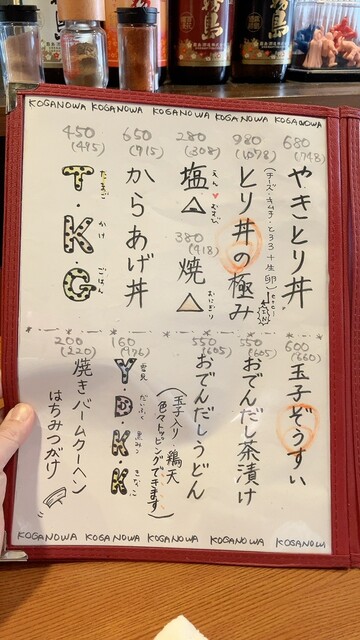 霧島
霧島
KOGANOWA KOGANOWA KOGANOWA KOGANOWA KOGANOWA
680
(748)
やきとり丼
980
(1078)
とり丼の極み
(チーズ・キムチ・とろろ+生卵)
280
(308)
塩
えん
むすび
380
(418)
焼
おにぎり
650
(715)
からあげ丼
450
(495)
T.K.G
たまご
かけ
ごはん
600
(660)
玉子ぞうすい
550
(605)
おでんだし茶漬け
550
(605)
おでんだしうどん
(玉子入り 鶏天
色々トッピングできます)
160
(176)
Y.D.K.K
雪見
だいふく
黒みつ
きなこ
200
(220)
焼きバームクーヘン
はちみつがけ
KOGANOWA KOGANOWA KOGANOWA KOGANOWA KOGANOWA